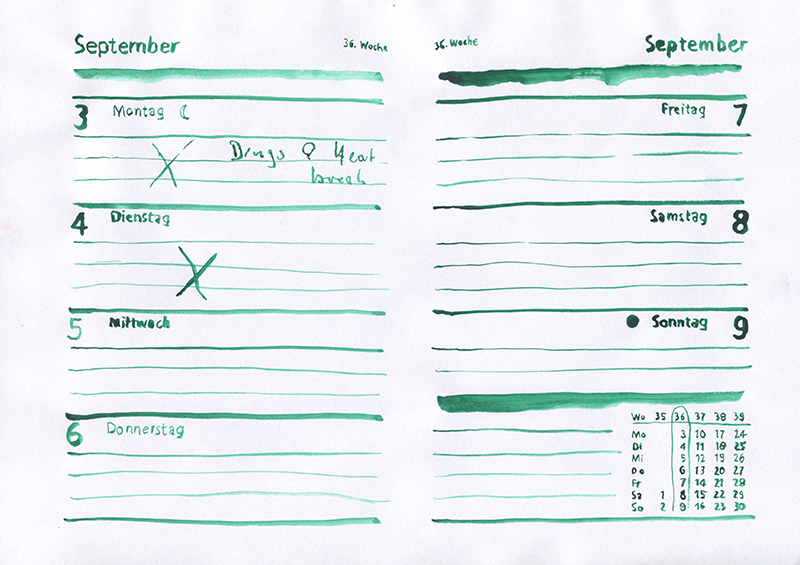 September
36. Woche
3 Montag
Drugs
break
4 Dienstag
5 Mittwoch
6 Donnerstag
36. Woche
September
Freitag 7
Samstag 8
Sonntag 9
Wo 35 36 37 38 39
Mo 3 10 17 24
Di 4 11 18 25
Mi 5 12 19 26
Do 6 13 20 27
Fr 7 14 21 28
Sa 1 8 15 22 29
So 2 9 16 23 30